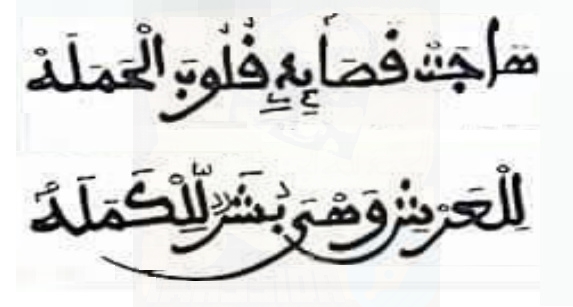 هَاجَتْ قُلُوبَ الْحَمَلَهْ
لِلْعَرْشِ وَهْىَ بُشَرٌ لِّلْكَمَلَهْ